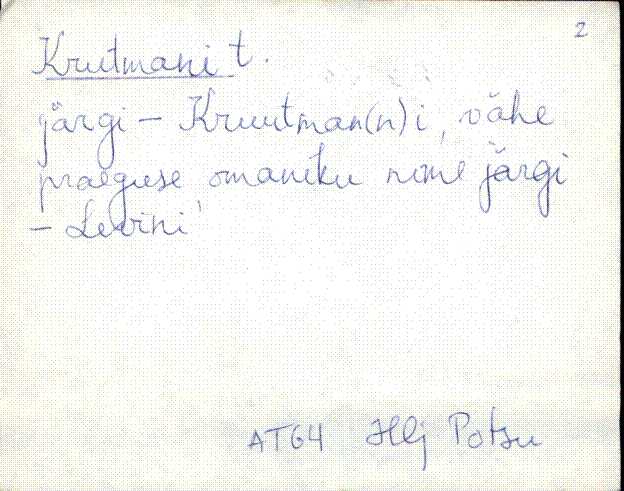 2
Krutmani t.
järgi – Kruutman(n)i, vähe
praeguse omaniku nime järgi
– Levini
AT64 Hlj Potsu